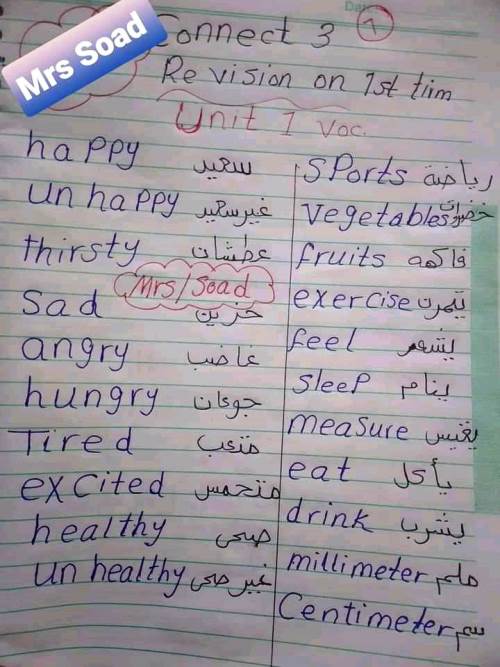 Mrs Soad
Connect 3
Revision on 1st tiim
Unit 1 voc.
happy سعيد
unhappy غير سعيد
thirsty عطشان
Mrs/Soad
Sad حزين
angry غاضب
hungry جوعان
Tired متعب
exCited متحمس
healthy صحى
unhealthy غير صحى
sPorts رياضة
vegetables خضروات
fruits فاكهه
exercise يتمرن
feel يشعر
sleeP ينام
measure يقيس
eat يأكل
drink يشرب
millimeter ملم
Centimeter سم